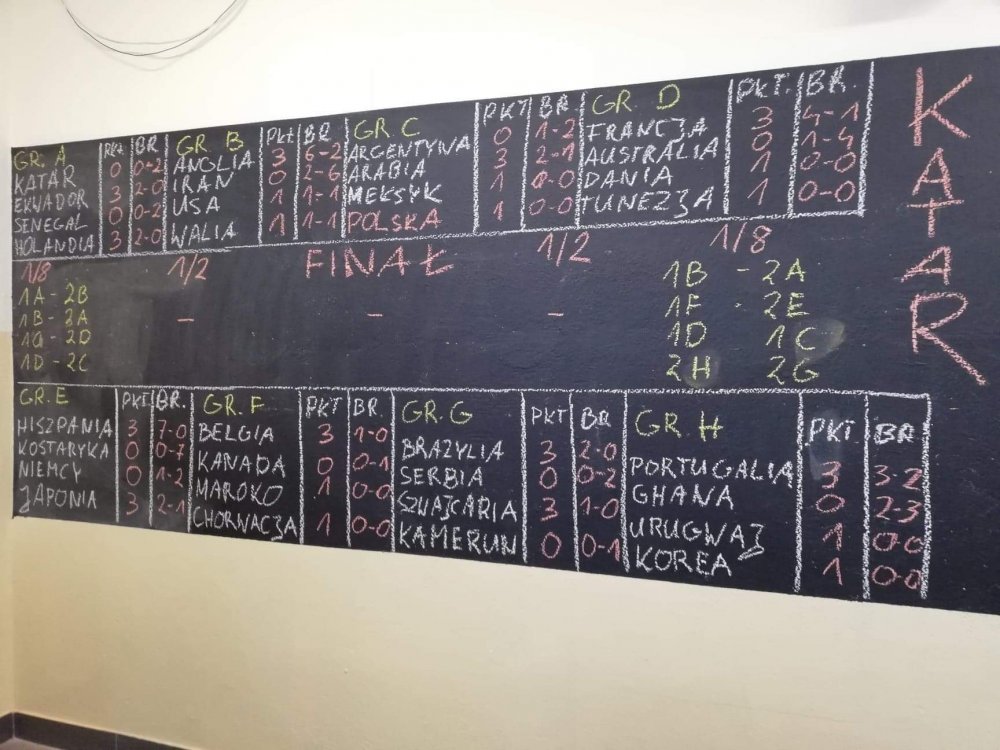 GR. A PKt BR.
KATAR 0 0-2
EKWADOR 3 2-0
SENEGAL 0 0-2
HOLANDIA 3 2-0
GR B PKt BR.
ANGLIA 3 6-2
IRAN 0 2-6
USA 1 1-1
WALIA 1 1-1
GR. C PKT BR.
ARGENTYNA 0 1-2
ARABIA 3 2-1
MEKSYK 1 0-0
POLSKA 1 0-0
GR. D PKT. BR.
FRANCJA 3 4-1
AUSTRALIA 0 1-4
DANIA 1 0-0
TUNEZJA 1 0-0
KATAR
1/8 1/2 FINAŁ 1/2 1/8
1A - 2B
1B - 2A
1C - 2D
1D - 2C
- - -
1B - 2A
1F - 2E
1D 1C
2H 2G
GR. E PKT BR.
HISZPANIA 3 7-0
KOSTARYKA 0 0-7
NIEMCY 0 1-2
JAPONIA 3 2-1
GR. F PKT BR.
BELGIA 3 1-0
KANADA 0 0-1
MAROKO 1 0-0
CHORWACJA 1 0-0
GR. G PKT BR
BRAZYLIA 3 2-0
SERBIA 0 0-2
SWAJCARIA 3 1-0
KAMERUN 0 0-1
GR. H PKT BR
PORTUGALIA 3 3-2
GHANA 0 2-3
URUGWAJ 1 0-0
KOREA 1 0-0